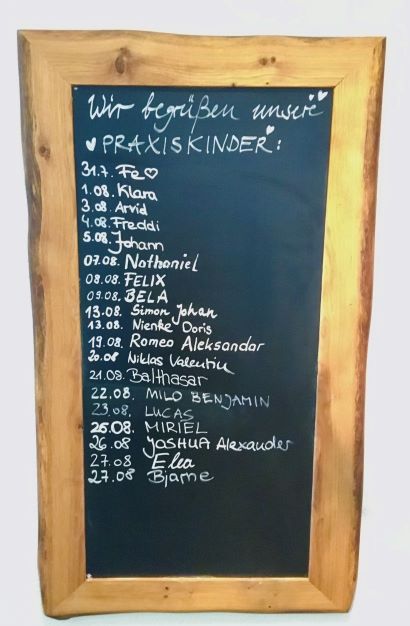 Wir begrüßen unsere
♥ PRAXISKINDER:
31.7. Fe♡
1.08. Klara
3.08. Arvid
4.08. Freddi
5.08. Johann
07.08. Nathaniel
08.08. FELIX
09.08. BELA
13.08. Simon Johan
13.08. Nienke Doris
19.08. Romeo Aleksandar
20.08 Niklas Valentin
21.08. Balthasar
22.08. MILO BENJAMIN
23.08. LUCAS
26.08. MIRIEL
26.08 JOSHUA Alexander
27.08 Elea
27.08 Bjarne